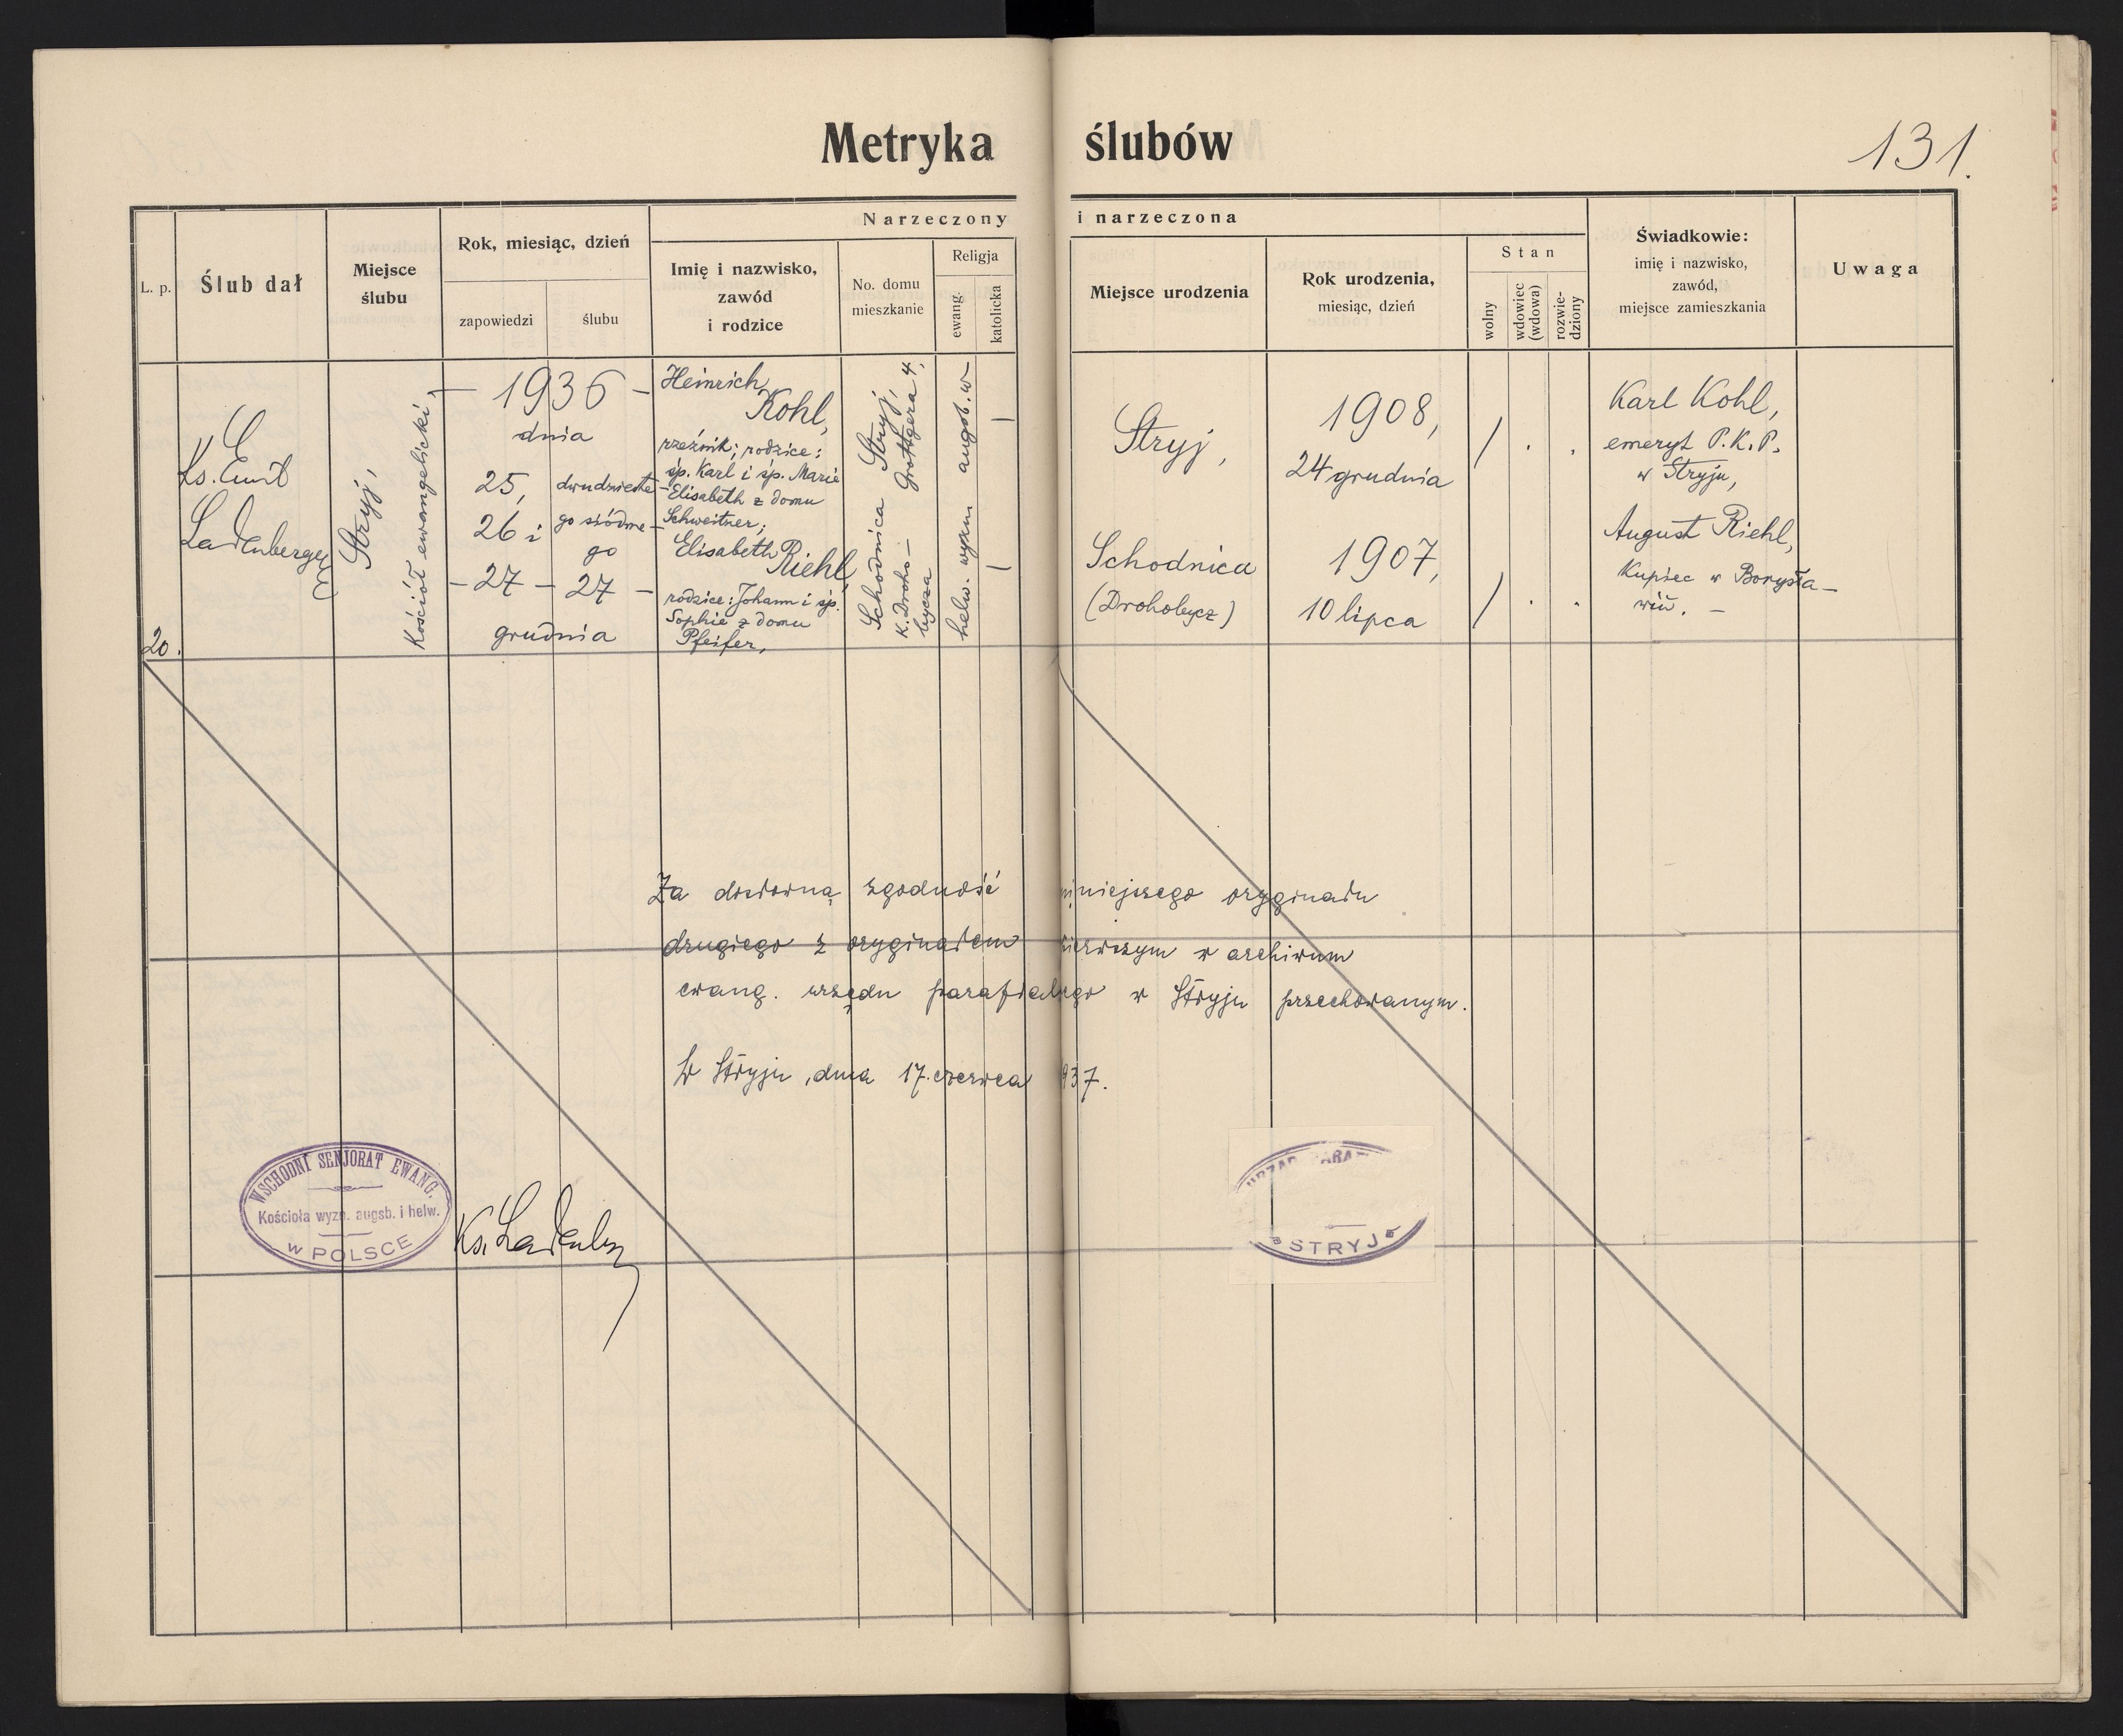 Metryka ślubów
131.
L. p.
Ślub dał
Miejsce
ślubu
Rok, miesiąc, dzień
zapowiedzi
ślubu
Narzeczony i narzeczona
Imię i nazwisko,
zawód
i rodzice
No. domu
mieszkanie
Religja
ewang.
katolicka
Miejsce urodzenia
Rok urodzenia,
miesiąc, dzień
Stan
wolny
wdowiec
(wdowa)
rozwie-
dziony
Świadkowie:
imię i nazwisko,
zawód,
miejsce zamieszkania
Uwaga
20.
Ks. Emil
Ladenberger
Stryj,
Kościół ewangelicki,
– 1936 –
dnia
25,
26 i
– 27 –
dwudzieste-
go siódme-
go
27 –
grudnia
Heinrich
Kohl,
rzeźnik; rodzice:
śp. Karl i śp. Marie
-Elisabeth z domu
Schweitzer;
Elisabeth Riehl,
rodzice: Johann i śp.
Sophie z domu
Pfeifer,
Stryj,
Grottgera 4,
Schodnica
k. Droho-
bycza
augsb. w
helw. wyzn
Stryj,
1908,
24 grudnia
Schodnica
(Drohobycz)
1907,
10 lipca
Karl Kohl,
emeryt P.K.P.
w Stryju,
August Riehl,
Kupiec w Borysła-
wiu. –
Za dosłowną zgodność niniejszego oryginału
drugiego z oryginałem pierwszym w archiwum
ewang. urzędu parafialnego w Stryju przechowanym.
W Stryju, dnia 17. czerwca 1937.
WSCHODNI SENJORAT EWANG.
Kościoła wyzn. augsb. i helw.
W POLSCE
Ks. Ladenberger
STRYJ